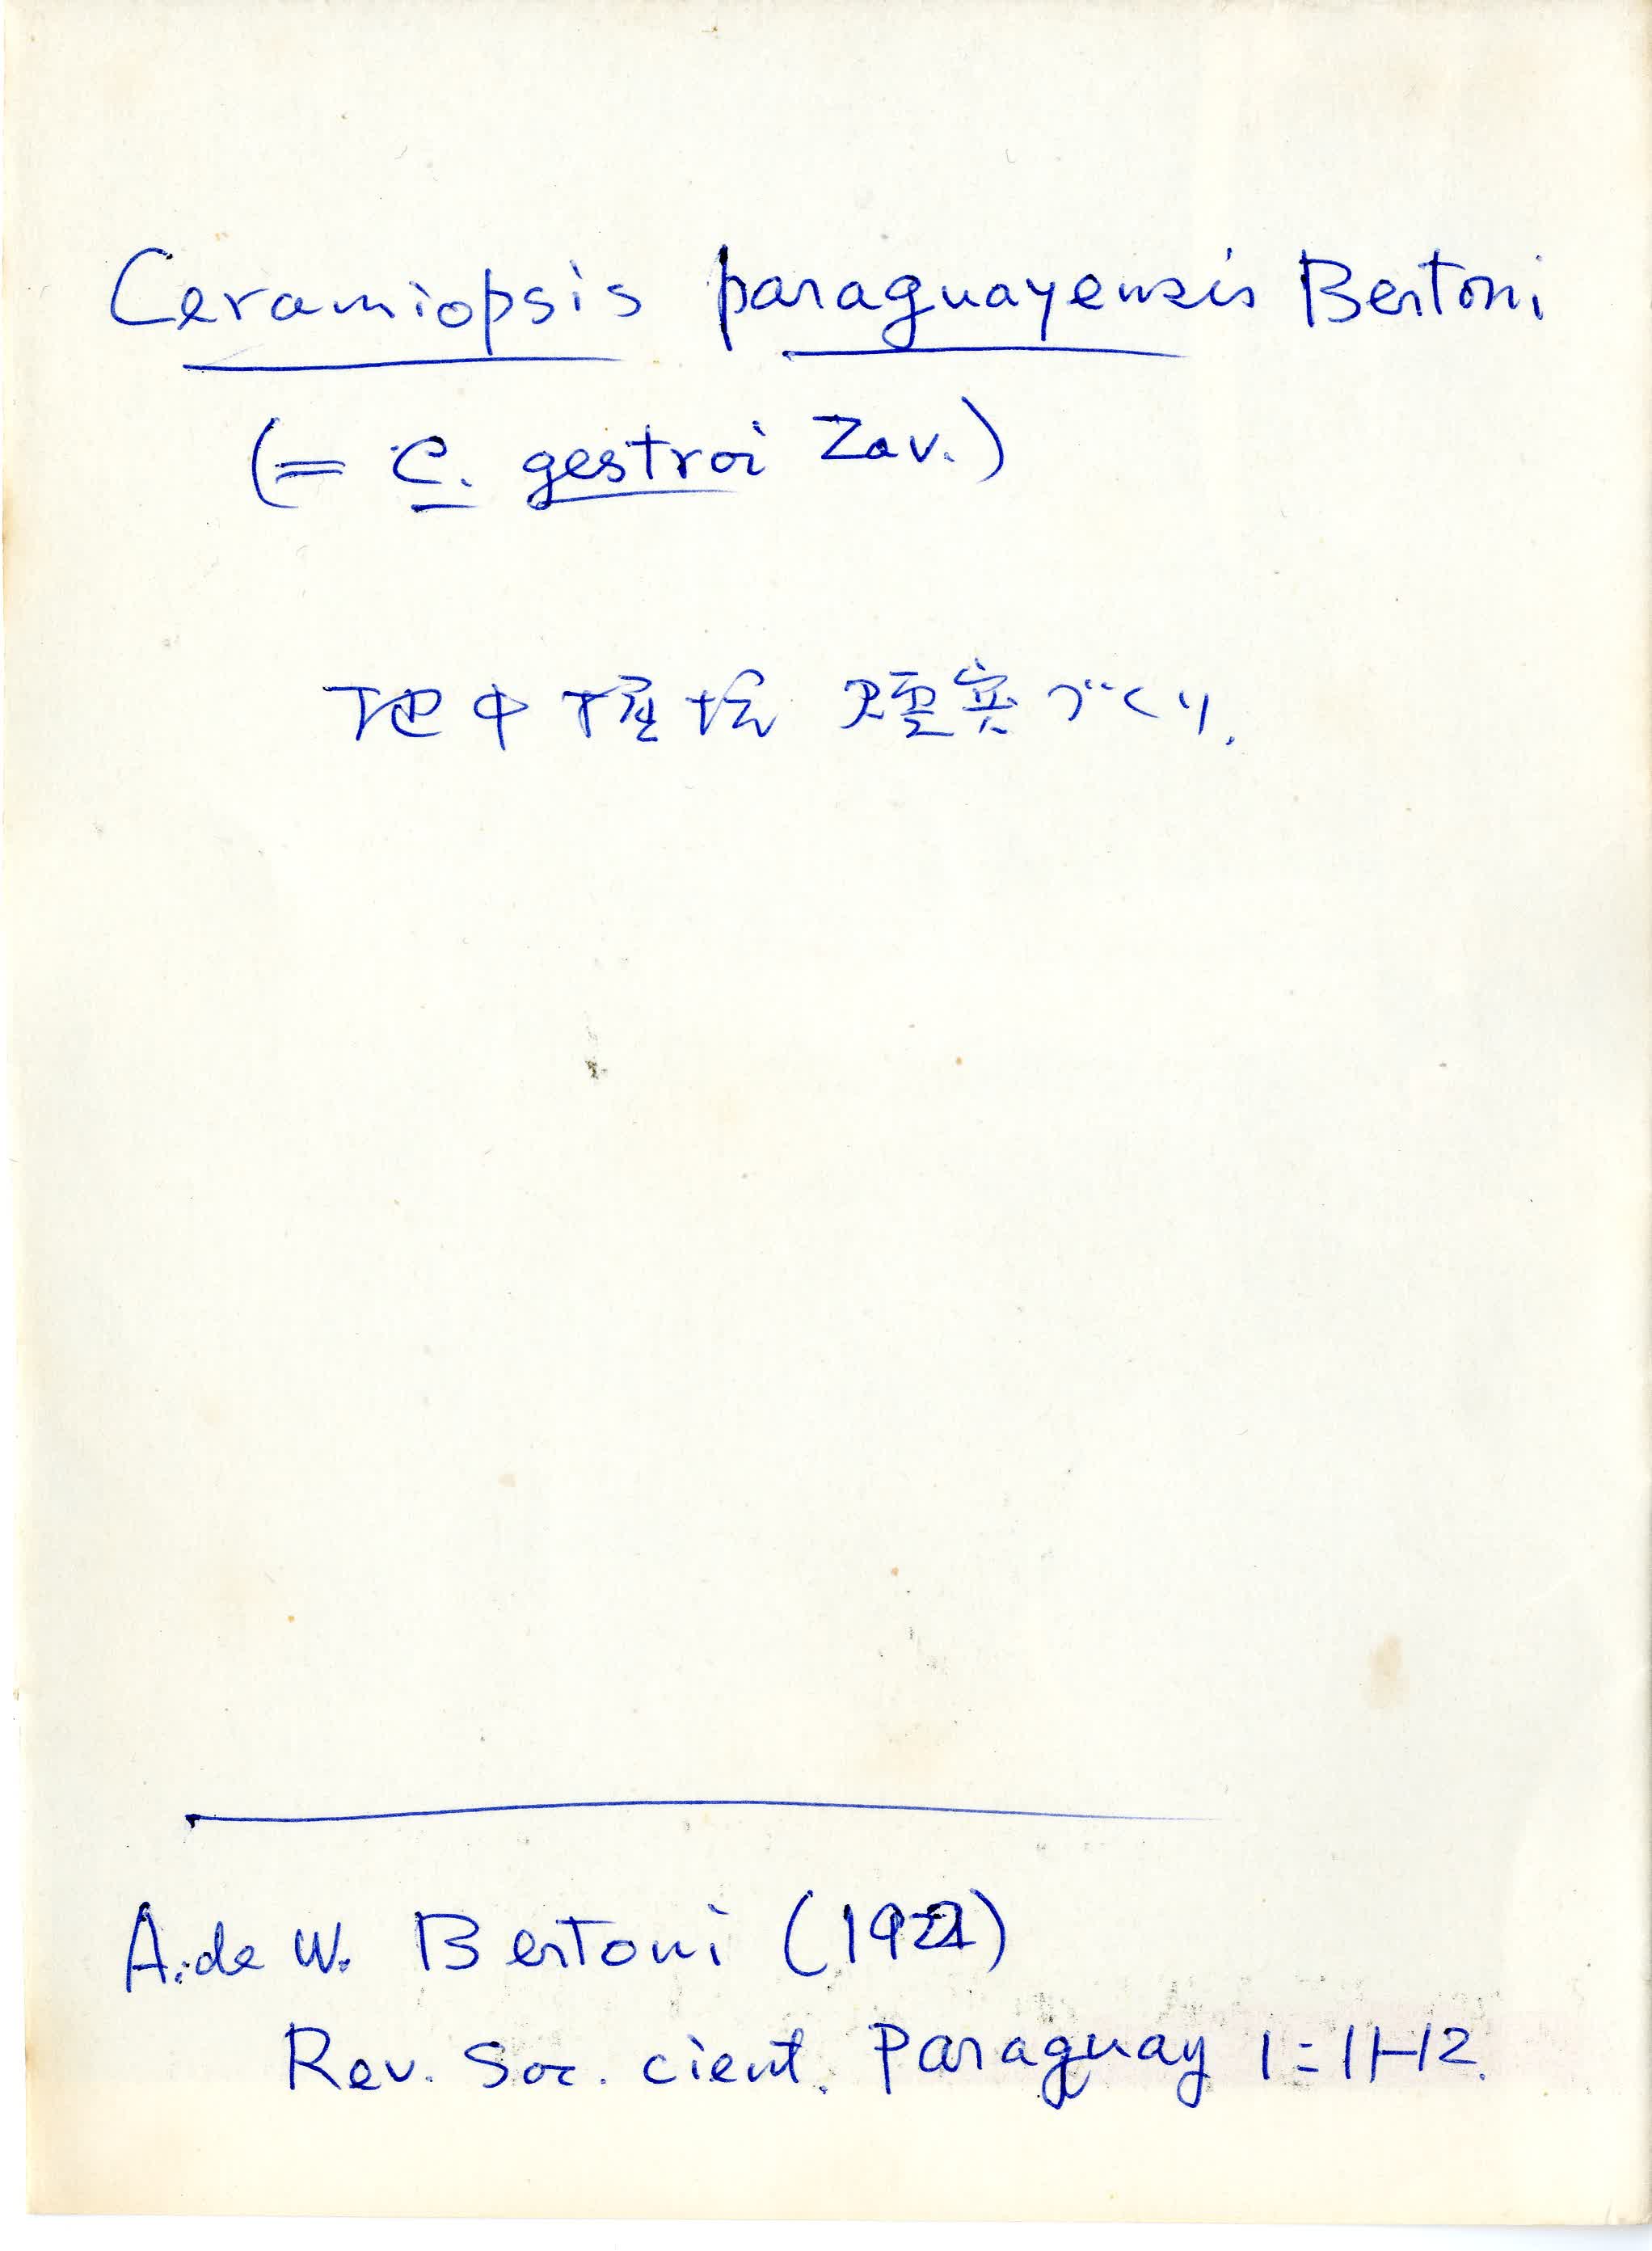 Ceramiopsis paraguayensis Bertoni
(= C. gestroi Zav.)
地中掘坑 煙突づくり.
A. de W. Bertoni (1921)
Rev. Soc. cient. Paraguay 1:11-12.